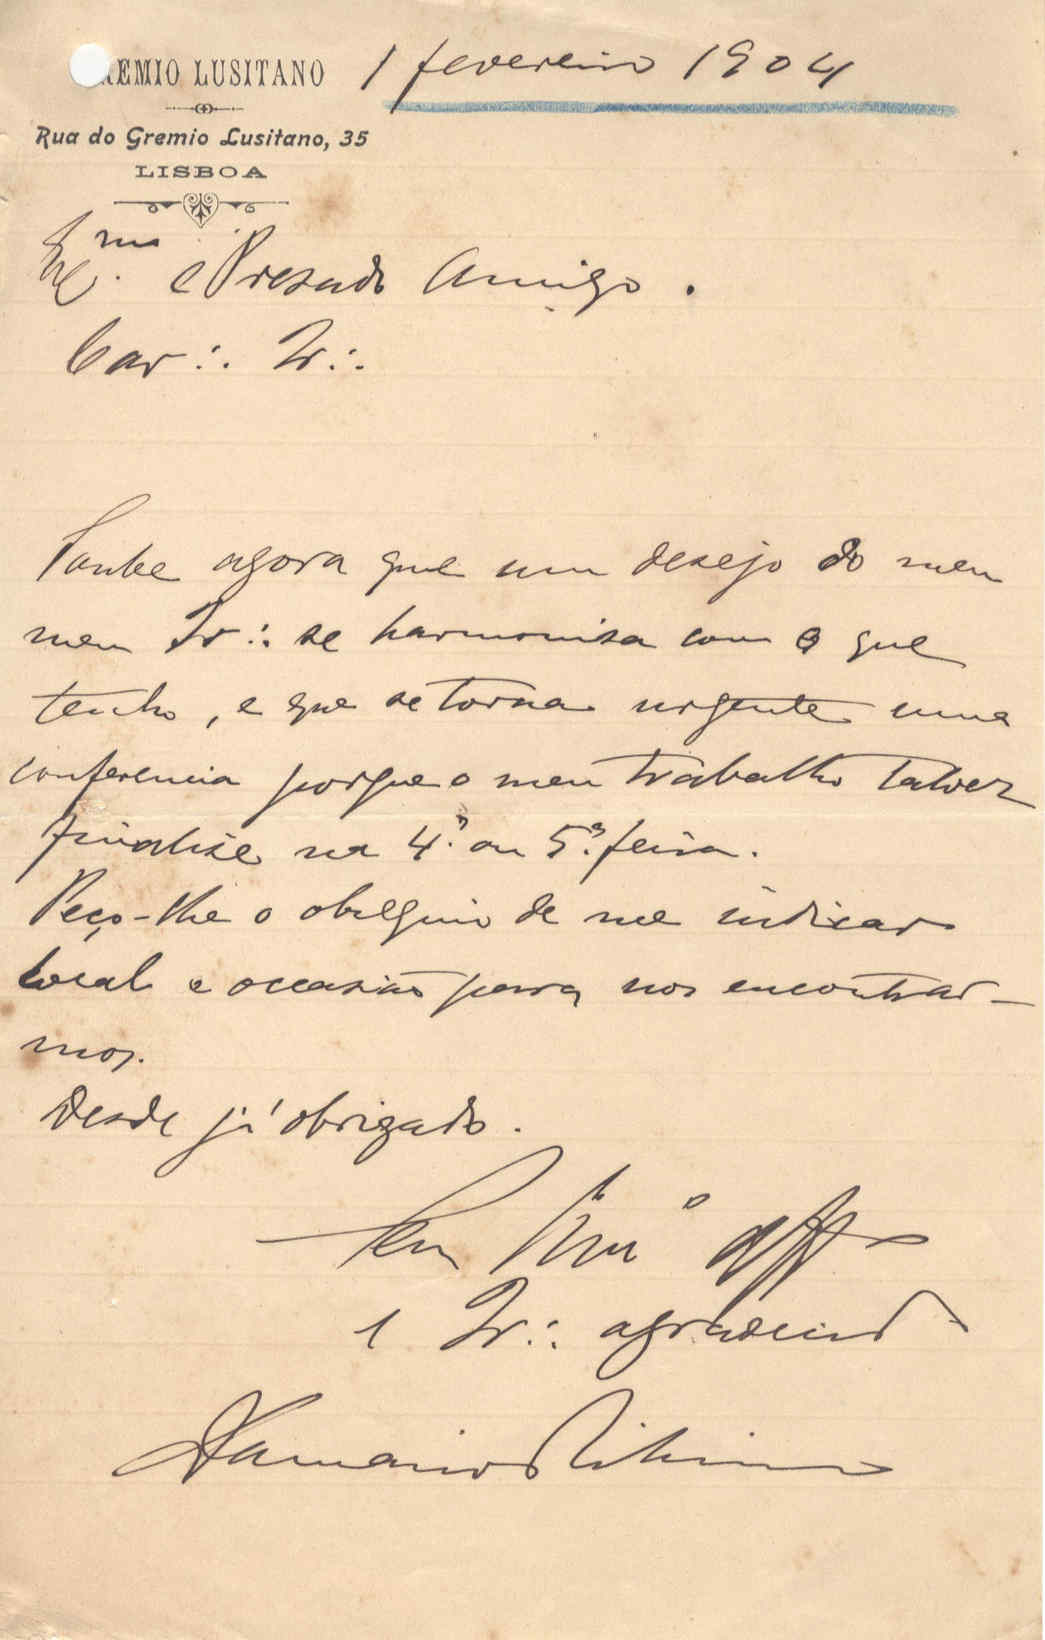 GREMIO LUSITANO
Rua do Gremio Lusitano, 35
LISBOA
1 fevereiro 1904
Exmo. e Presado Amigo.
Car∴ Ir∴
Soube agora que um desejo do meu
meu Ir∴ se harmonisa com o que
tenho, e que se torna urgente uma
conferencia porque o meu trabalho talvez
finalise na 4.ª ou 5.ª feira.
Peço-lhe o obsequio de me indicar
local e occasião para nos encontrar-
mos.
Desde já obrigado.
Seu affo
e Ir∴ agradecido
Ribeiro